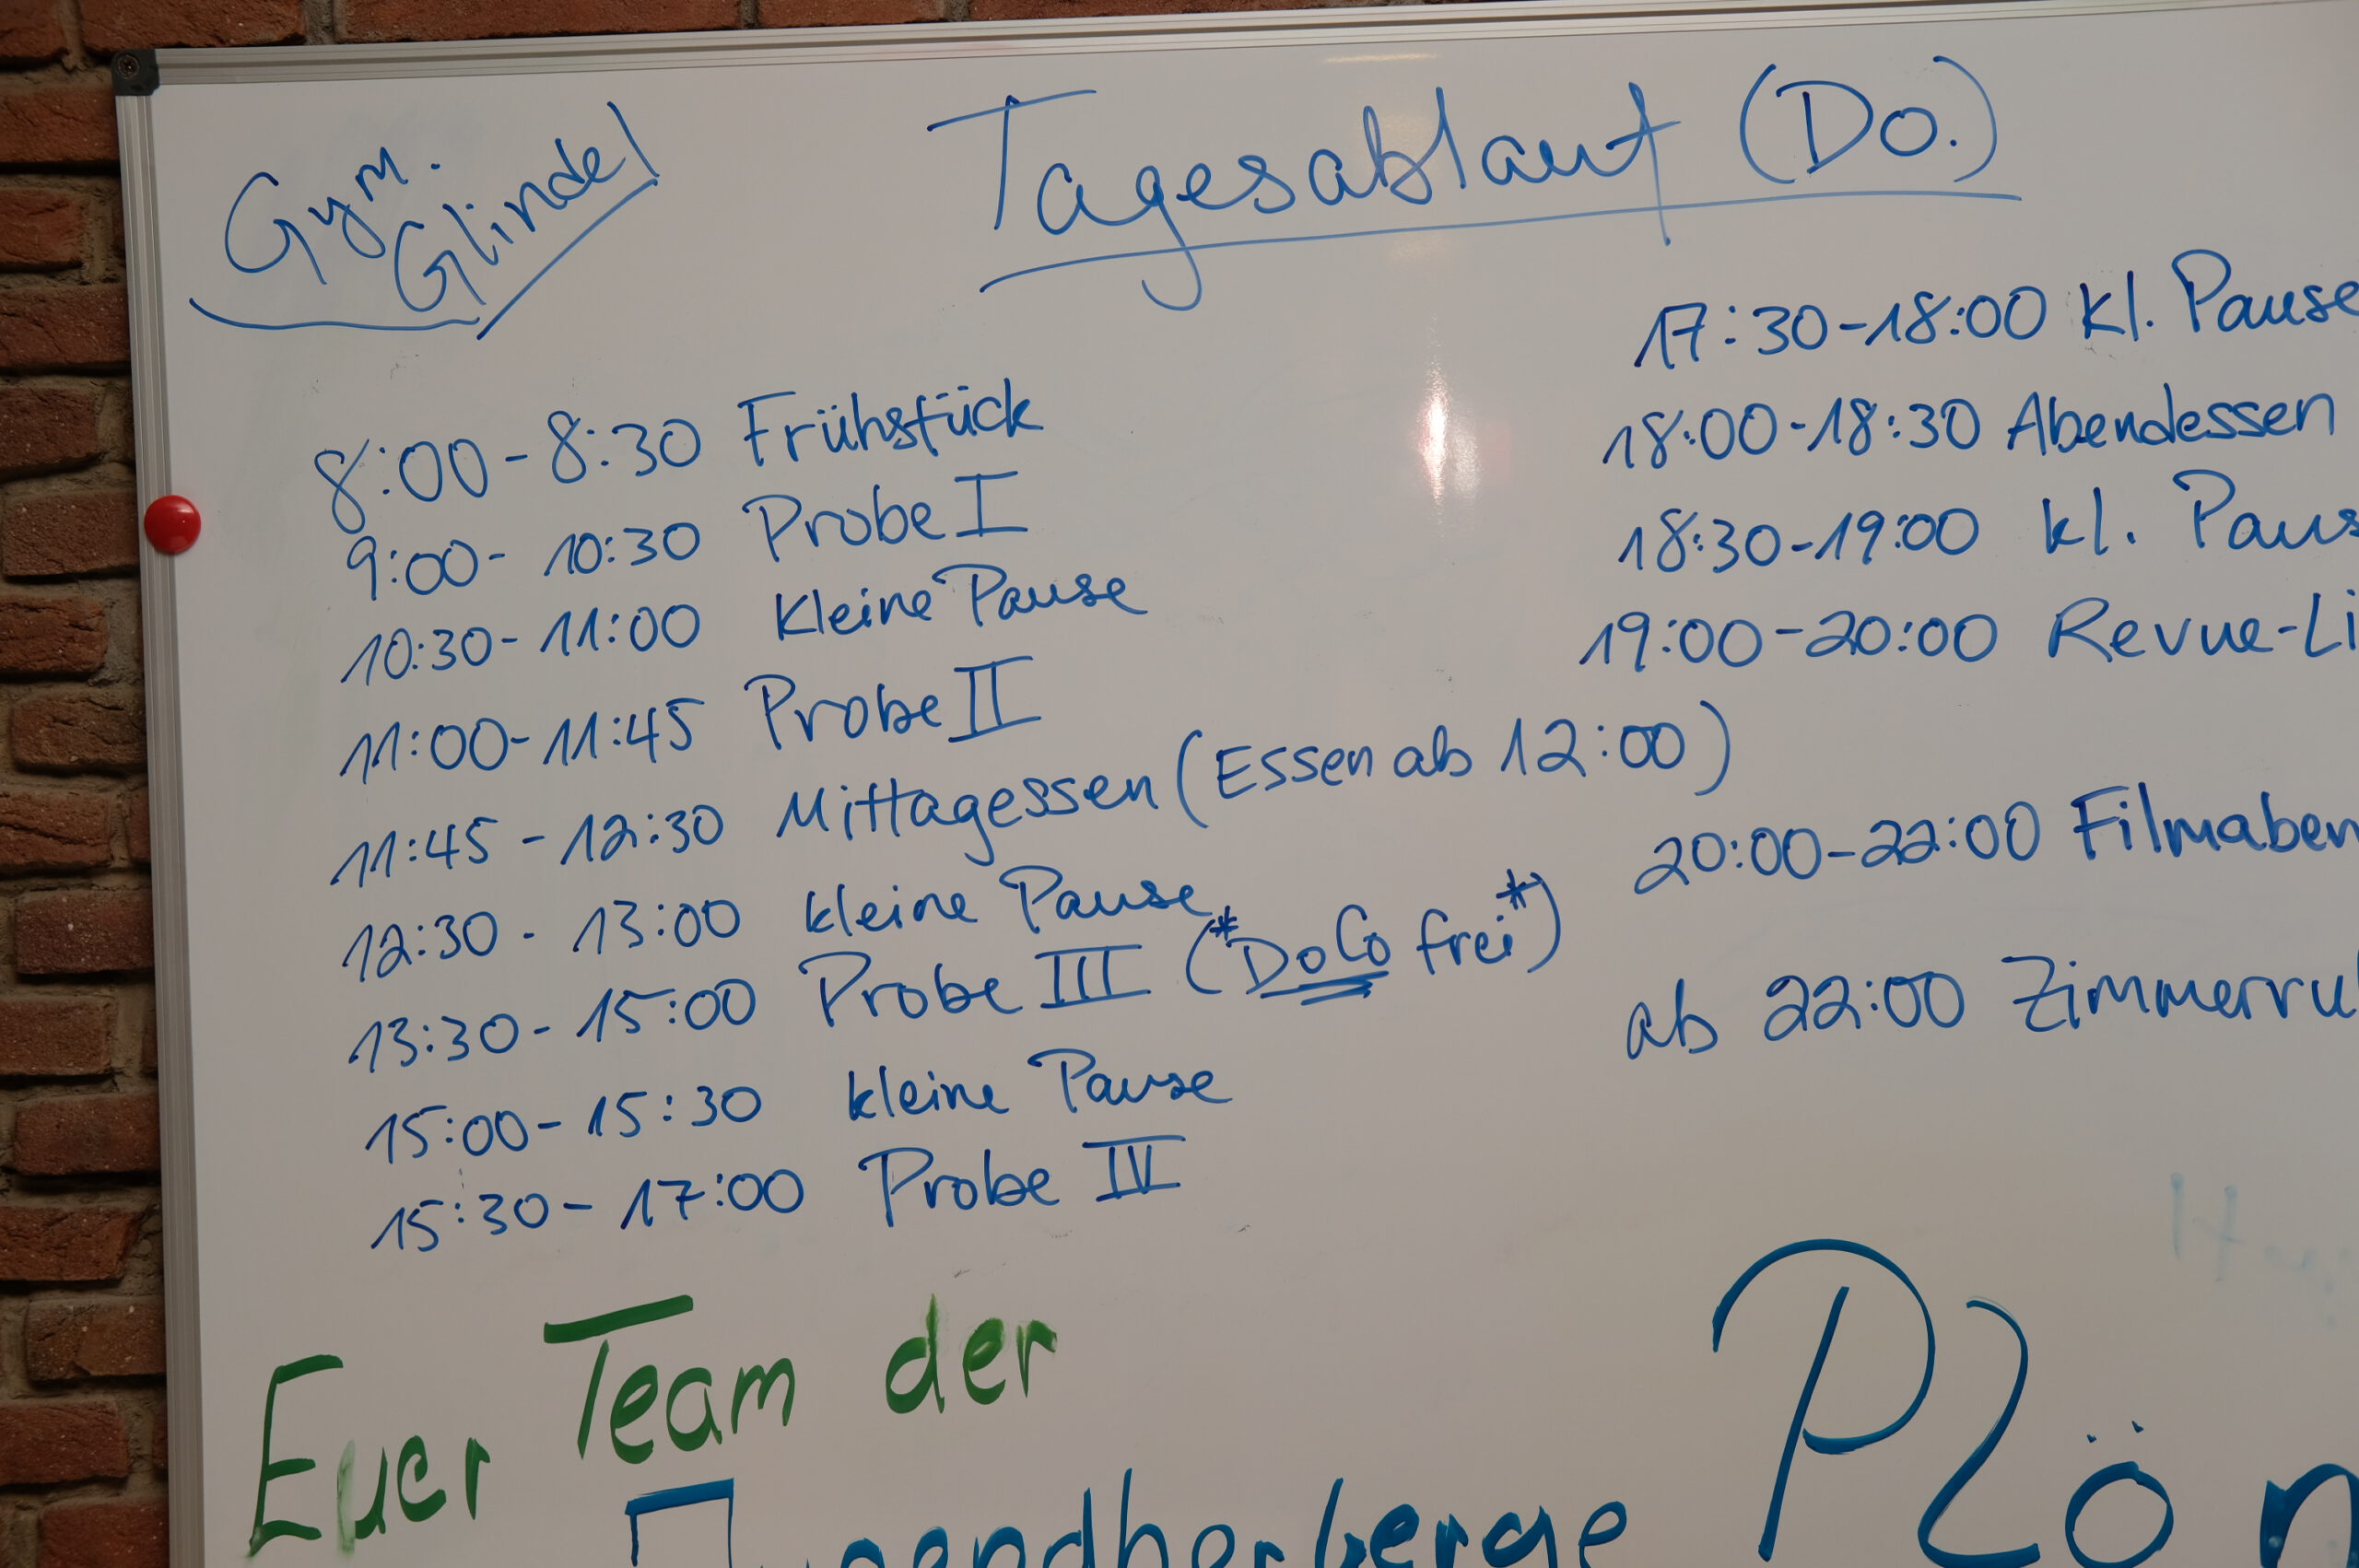 Gym.
Glinde
Tagesablauf (Do.)
8:00-8:30 Frühstück
9:00- 10:30 Probe I
10:30- 11:00 kleine Pause
11:00-11:45 Probe II
11:45 - 12:30 Mittagessen (Essen ab 12:00)
12:30 - 13:00 kleine Pause
13:30- 15:00 Probe III (*DoCo frei*)
15:00- 15:30 kleine Pause
15:30- 17:00 Probe IV
17:30-18:00 kl. Pause
18:00-18:30 Abendessen
18:30-19:00 kl. Paus
19:00-20:00 Revue-Li
20:00-22:00 Filmaben
ab 22:00 Zimmerru
Euer Team der
Jugendherberge Plön